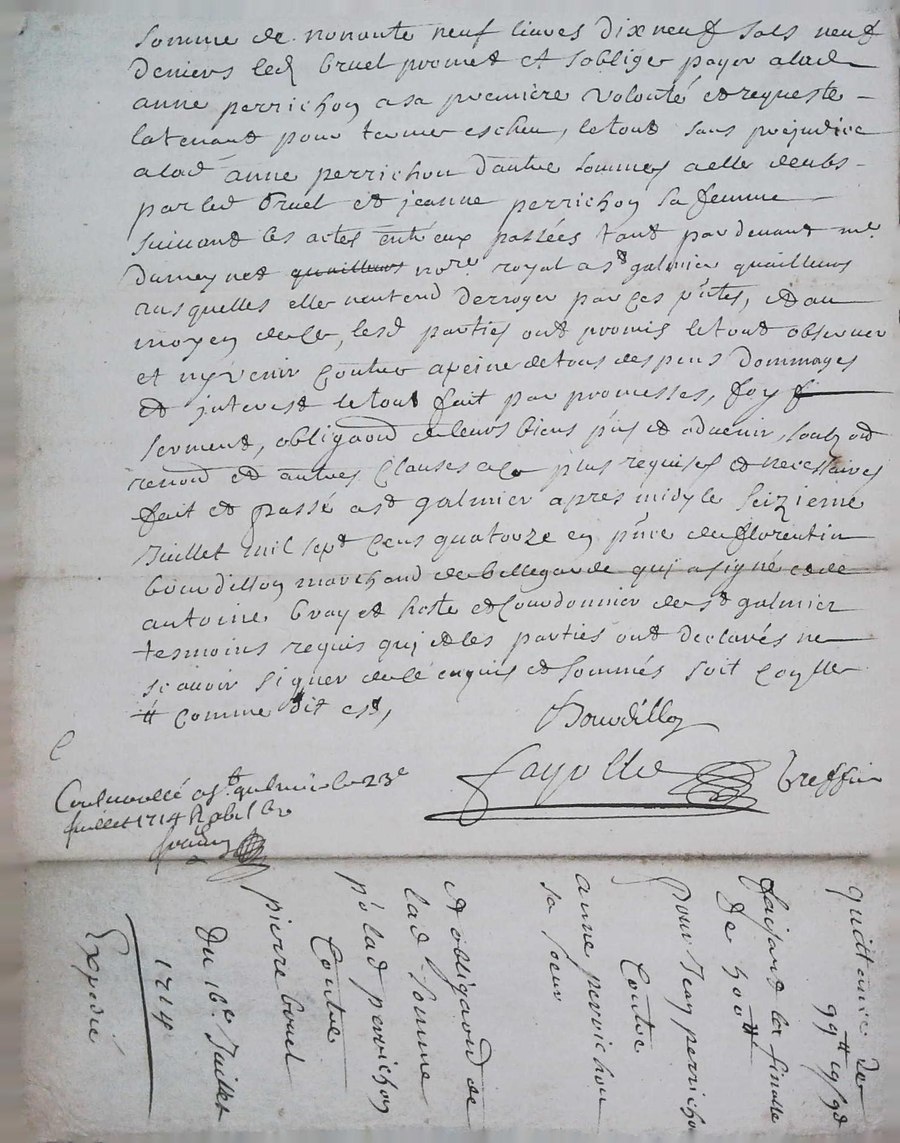 somme de nonante neuf livres dix neuf sols neuf
deniers led bruel promet et soblige payer a lad
anne perrichon a sa premiere volonté et requeste
la tenant pour terme escheu, le tout sans prejudice
a lad anne perrichon dautre sommes a elle deubs
par led bruel et jeanne perrichon sa femme
suivant les actes entre eux passées tant par devant me
dumeynet quailleurs nore royal a st galmier quailleurs
ausquelles elle nentend derroger par ces pntes, et au
moyen de ce, lesd parties ont promis le tout observer
et ny venir contre a peine de tous despens dommages
et interest le tout fait par promesses, foy
serment, obligaon de leurs biens pns et advenir, soub on
renon et autres clauses a ce plus requises et necessaires
fait et passé a st galmier apres midy le seizieme
juillet mil sept cens quatorze en pnce de florentin
bourdillon marchand de bellegarde qui a signé et de
antoine brayet hoste et courdonnier de st galmier
tesmoins requis qui et les parties ont declarés ne
scavoir signer de ce enquis et sommés soit
# comme dit est,
Bourdillon
Fayolle
Treffin
Controollé a st galmier le 23e
juillet 1714 R
quittance de
99# 19s 9d
faisant la finalle
de 300#
pour Jean perrichon
Contre
anne perrichon
sa soeur
et obligaon de
lad somme
p lad perrichon
Contre
pierre bruel
Du 16e Juillet
1714
Expedié